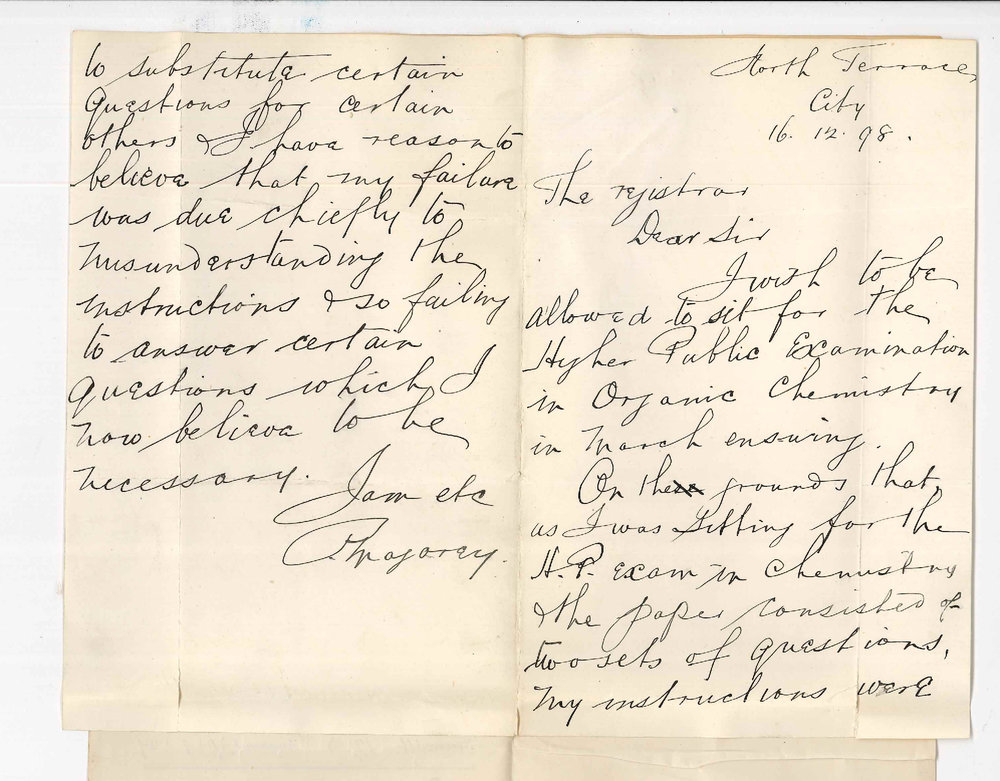 North Terrace,
City
16. 12. 98.
The registrar
Dear Sir
I wish to be
allowed to sit for the
Higher Public Examination
in Organic Chemistry
in March ensuing.
On the grounds that,
as I was sitting for the
H.P. Exam in Chemistry
& the paper consisted of
two sets of questions,
my instructions were
to substitute certain
questions for certain
others & I have reason to
believe that my failure
was due chiefly to
misunderstanding the
instructions & so failing
to answer certain
questions which I
now believe to be
necessary.
I am etc
Magarey.